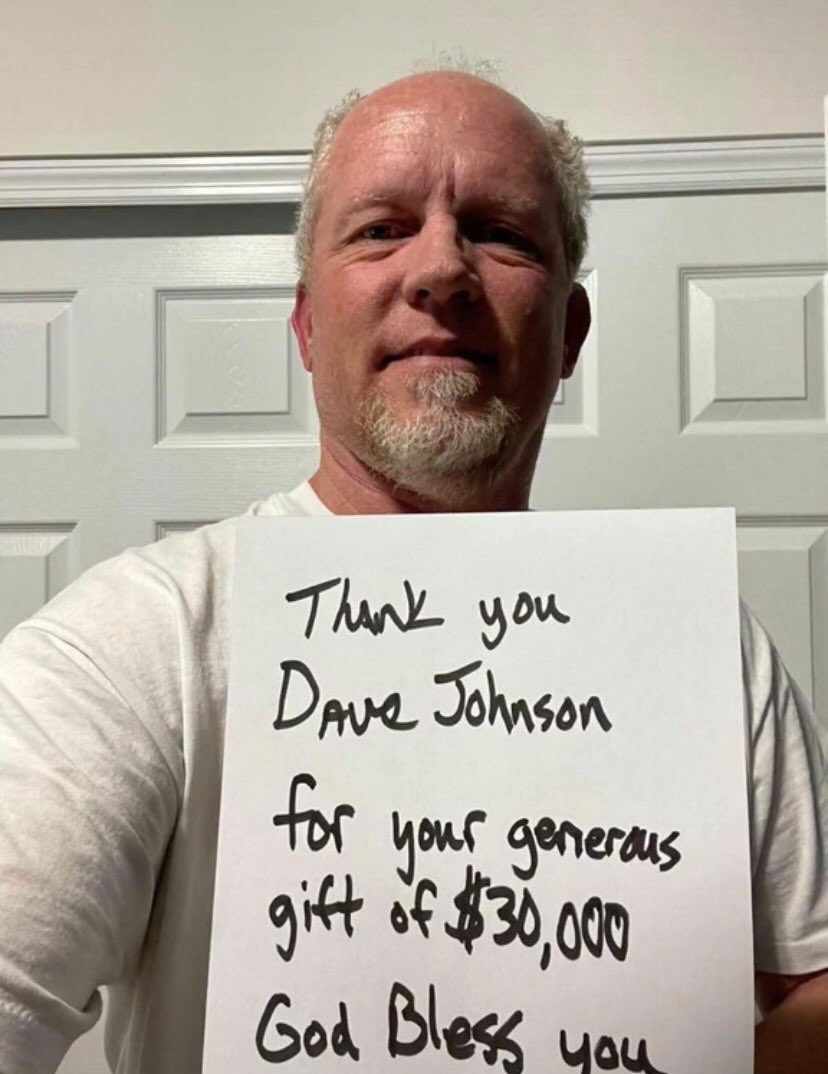 Thank you
Dave Johnson
for your generous
gift of $30,000
God Bless you